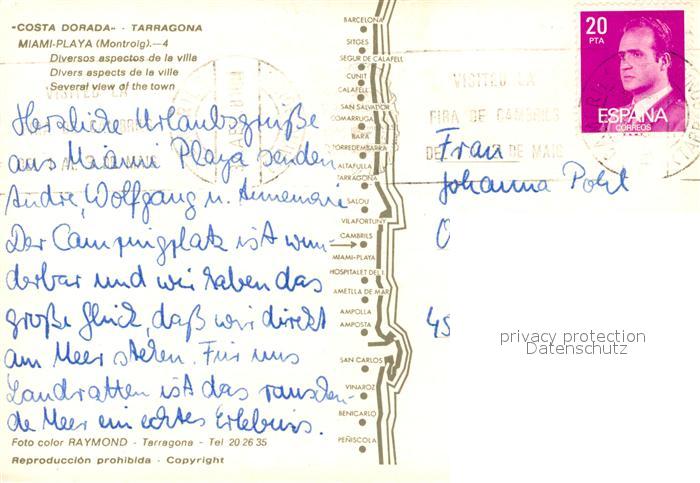 «COSTA DORADA» - TARRAGONA
MIAMI-PLAYA (Montroig).—4
Diversos aspectos de la villa
Divers aspects de la ville
Several view of the town
Herzliche Urlaubsgrüße
aus Miami Playa senden
Andre, Wolfgang u. Annemarie
Der Campingplatz ist wun-
derbar und wir haben das
große Glück, daß wir direkt
am Meer stehen. Für uns
Landratten ist das rauschen-
de Meer ein echtes Erlebnis.
Foto color RAYMOND - Tarragona - Tel 20 26 35
Reproducción prohibida - Copyright
BARCELONA
SITGES
SEGUR DE CALAFELL
CUNIT
CALAFELL
SAN SALVADOR
COMARRUGA
BARA
TORREDEMBARRA
ALTAFULLA
TARRAGONA
SALOU
VILAFORTUNY
CAMBRILS
MIAMI-PLAYA
HOSPITALET DEL I.
AMETLLA DE MAR
AMPOLLA
AMPOSTA
SAN CARLOS
VINAROZ
BENICARLO
PEÑISCOLA
VISITEU LA
FIRA DE CAMBRILS
DE MAIG
20
PTA
ESPAÑA
CORREOS
Frau
Johanna Pohl
45
privacy protection
Datenschutz